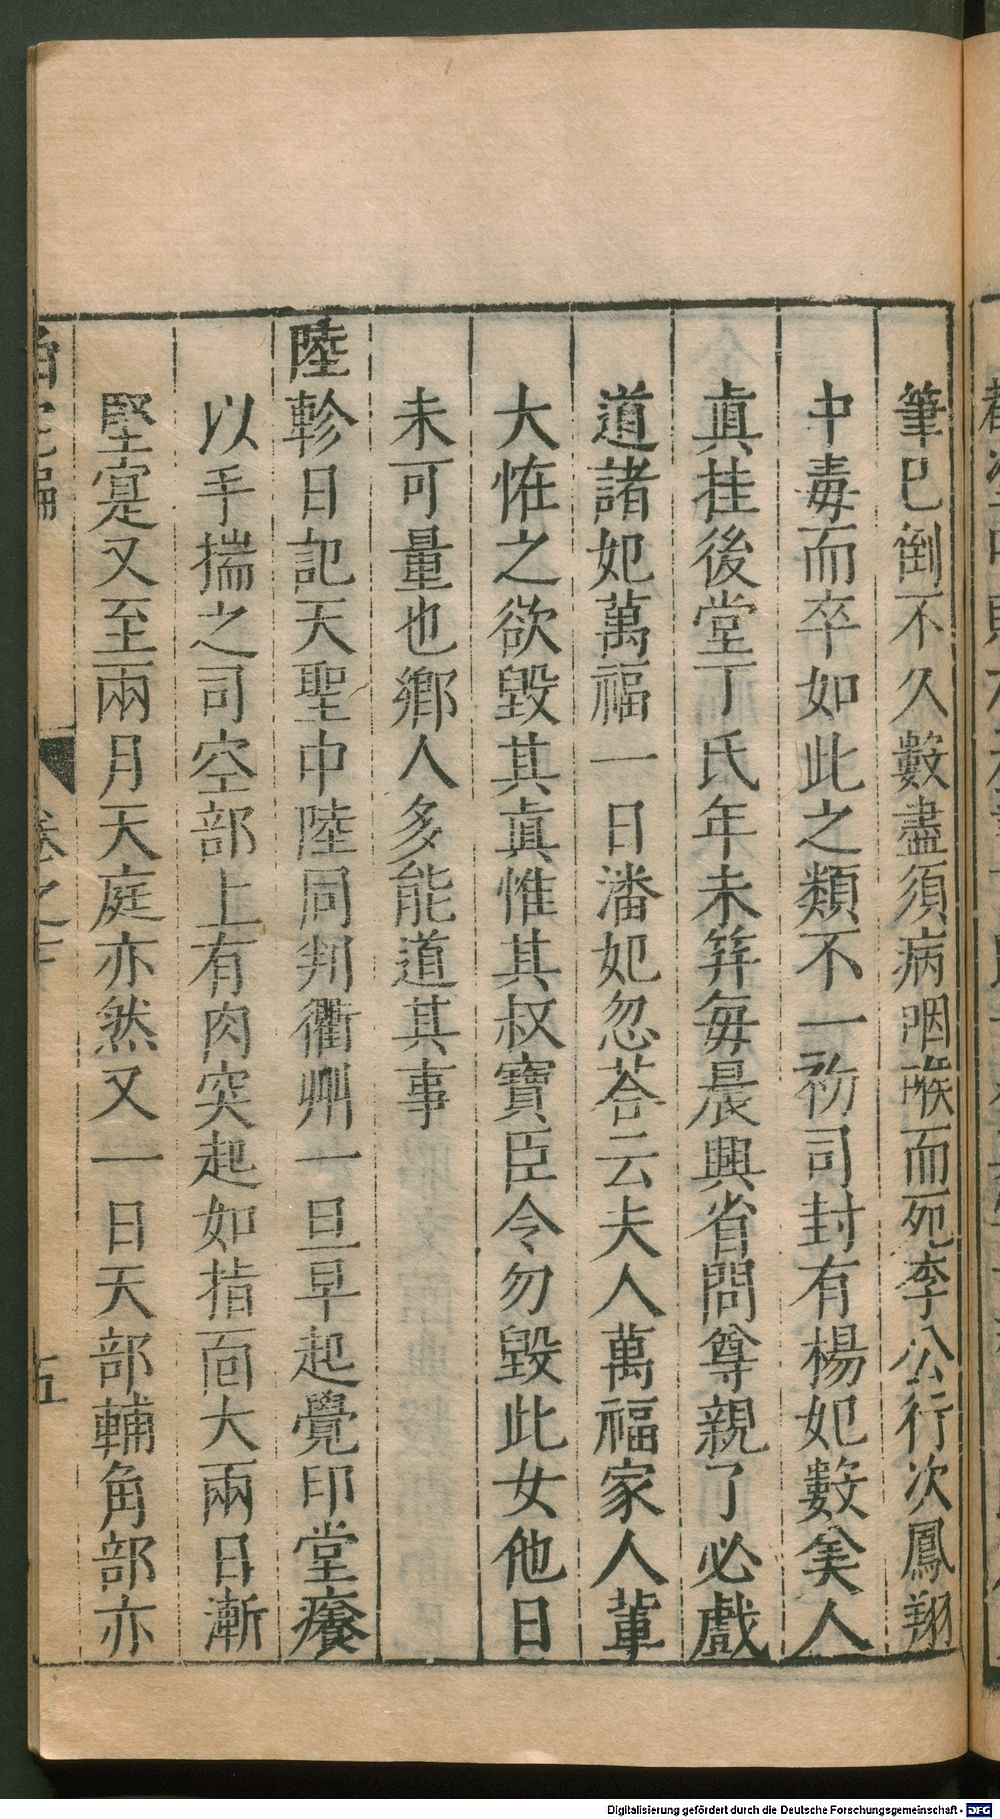 筆已倒不久數盡須病咽喉而死李公行次鳳翔
中毒而卒如此之類不一初司封有楊妃數矣人
眞挂後堂丁氏年未笄毎晨興省問尊親了必戲
道諸妃萬福一日潘妃忽荅云夫人萬福家人輩
大恠之欲毀其眞惟其叔寶臣令勿毀此女他日
未可量也鄉人多能道其事
陸軫日記天聖中陸同判衢州一旦早起覺印堂癢
以手揣之司空部上有肉突起如指面大兩日漸
堅寔又至兩月天庭亦然又一日天部輔角部亦
卷之下
五
Digitalisierung gefördert durch die Deutsche Forschungsgemeinschaft - DFG